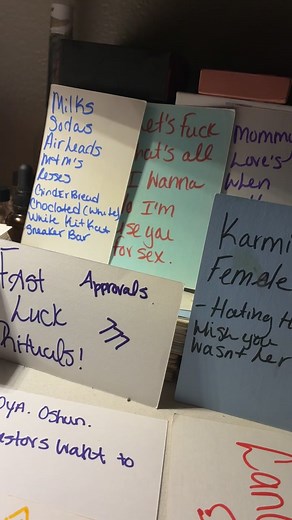 Milks
Sodas
Air Leads
M+M's
Reses
GinderBread
Choclated (White)
White Kit Kat
Sneaker Bar
Let's Fuck
that's all
I Wanna
I'm
use you
for sex.
Mommy
Love's
When
Karmi
Female
- Hating H
Wish you
wasn't her
Fast
Luck
Rituals!
Approvals.
Oya. Oshun.
estors want to